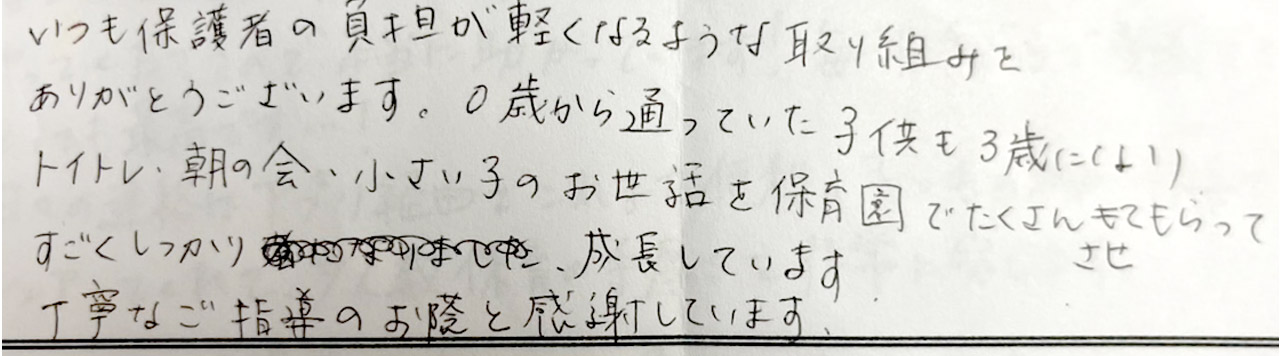 いつも保護者の負担が軽くなるような取り組みを
ありがとうございます。0歳から通っていた子供も3歳になり
トイトレ、朝の会、小さい子のお世話を保育園でたくさんもてもらって
させ
すごくしっかり 、成長しています
丁寧なご指導のお陰と感謝しています、